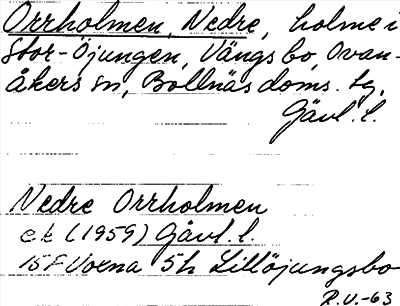 Orrholmen, Nedre, holme i
Stor-Öjungen, Vängsbo, Ovan-
åkers sn, Bollnäs doms. tg,
Gävl. l.
Nedre Orrholmen
ek (1959) Gävl. l.
15F Voxna 5h Lillöjungsbo
R.V.-63